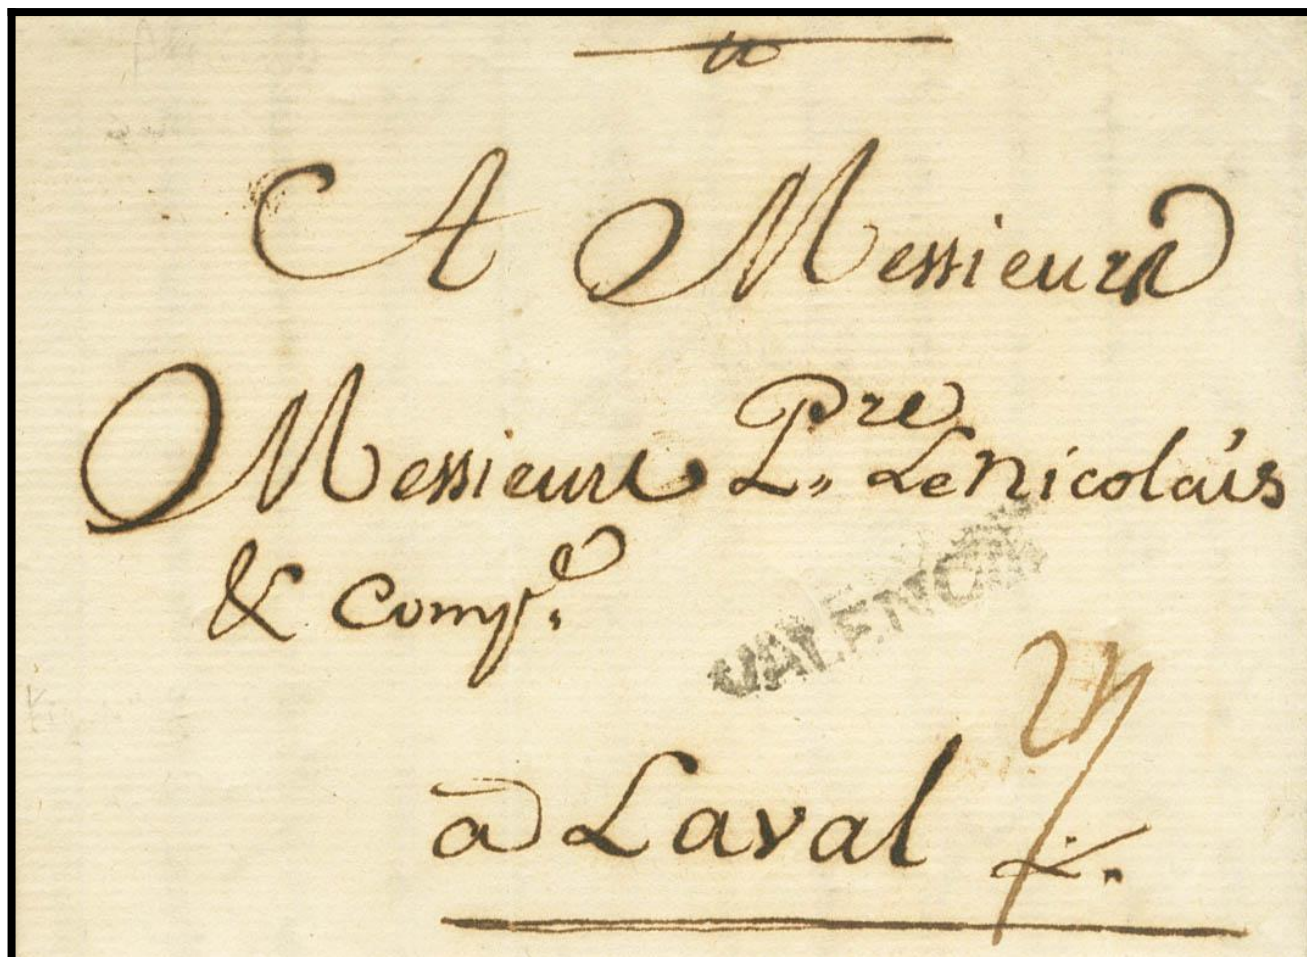 A Messieurs
Messieurs Pre L.. Le Nicolais
& Compe.
VALENCE
à Laval